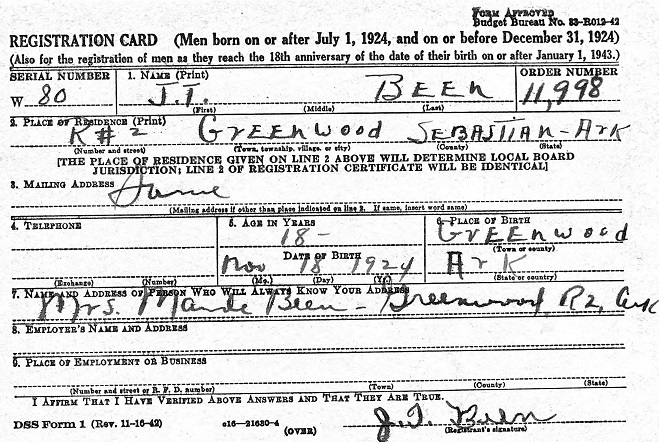 FORM APPROVED
Budget Bureau No. 33-R012-42
REGISTRATION CARD (Men born on or after July 1, 1924, and on or before December 31, 1924)
(Also for the registration of men as they reach the 18th anniversary of the date of their birth on or after January 1, 1943.)
SERIAL NUMBER 1. NAME (Print) ORDER NUMBER
W 80 J.T. BEEN 11,998
(First) (Middle) (Last)
2. PLACE OF RESIDENCE (Print)
R#2 GREENWOOD SEBASTIAN - ARK
(Number and street) (Town, township, village, or city) (County) (State)
[THE PLACE OF RESIDENCE GIVEN ON LINE 2 ABOVE WILL DETERMINE LOCAL BOARD
JURISDICTION; LINE 2 OF REGISTRATION CERTIFICATE WILL BE IDENTICAL]
3. MAILING ADDRESS
Same
(Mailing address if other than place indicated on line 2. If same, insert word same)
4. TELEPHONE 5. AGE IN YEARS 6. PLACE OF BIRTH
18 - GREENWOOD
DATE OF BIRTH (Town or county)
Nov 18 1924 ARK
(Exchange) (Number) (Mo.) (Day) (Yr.) (State or country)
7. NAME AND ADDRESS OF PERSON WHO WILL ALWAYS KNOW YOUR ADDRESS
Mrs. Maude Been - Greenwood, R2, Ark
8. EMPLOYER'S NAME AND ADDRESS
9. PLACE OF EMPLOYMENT OR BUSINESS
(Number and street or R. F. D. number) (Town) (County) (State)
I AFFIRM THAT I HAVE VERIFIED ABOVE ANSWERS AND THAT THEY ARE TRUE.
J.T. Been
DSS Form 1 (Rev. 11-16-42) c16-21630-4 (OVER) (Registrant's signature)